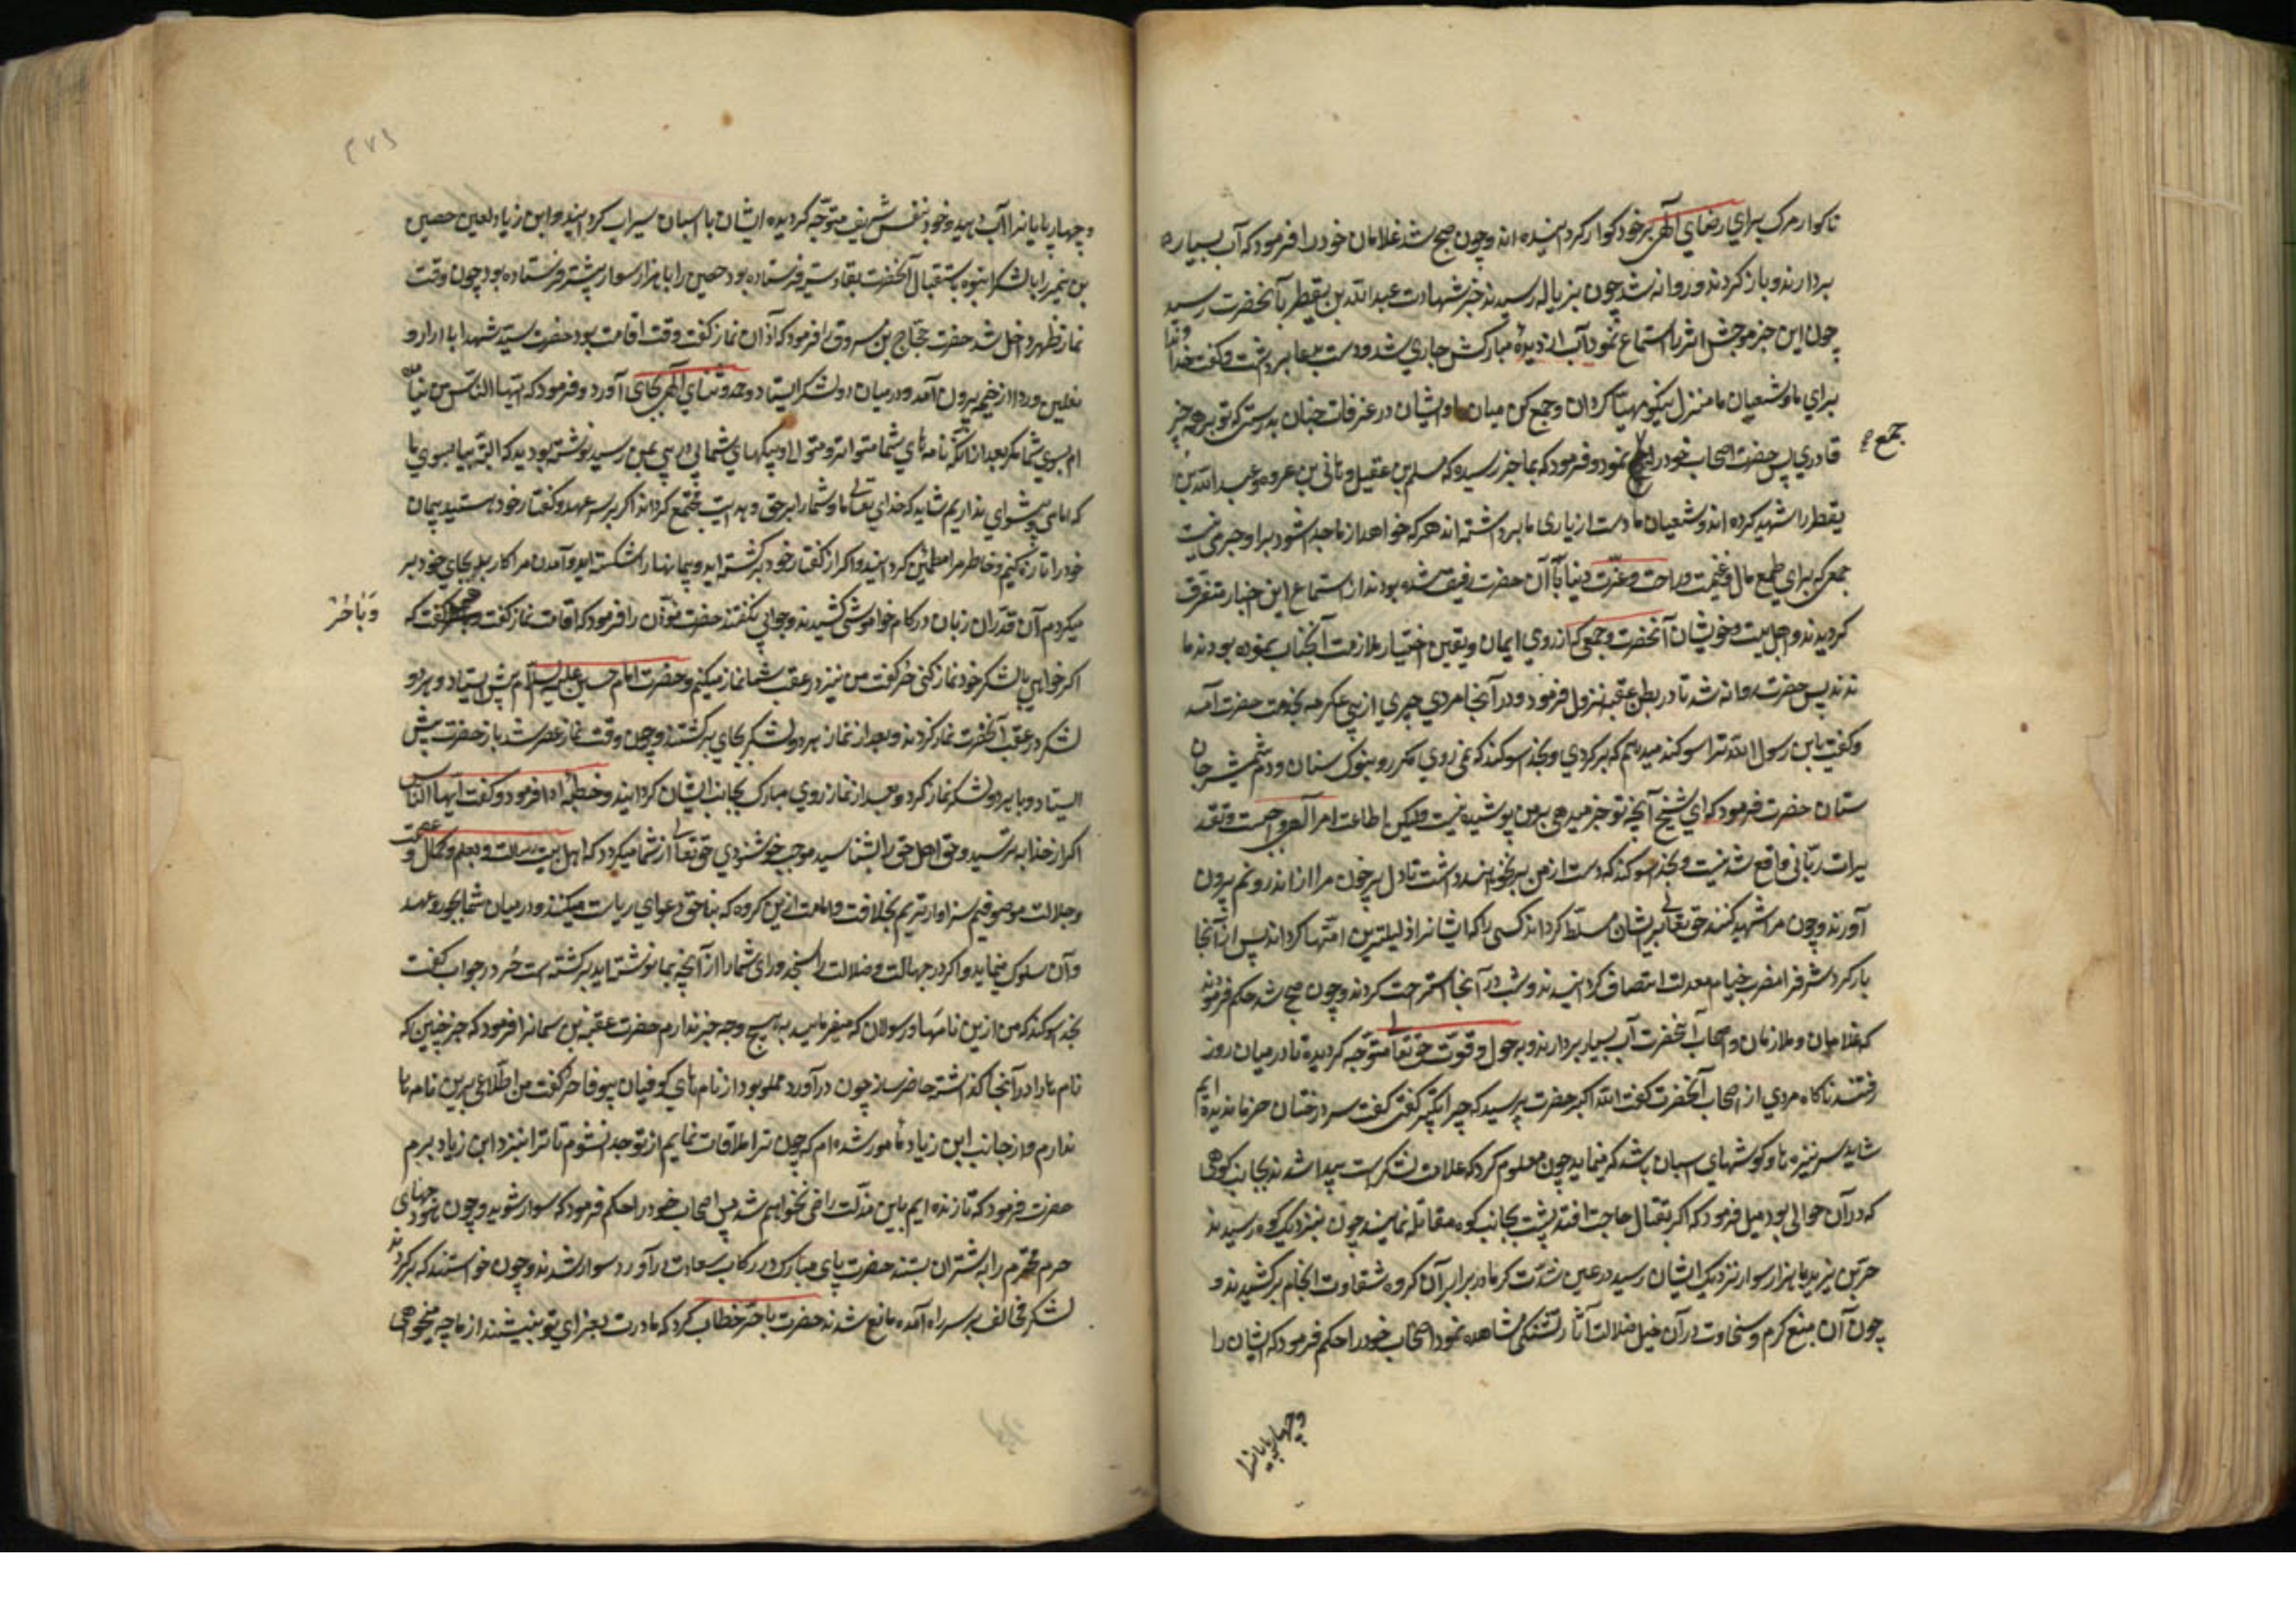 ناکوار مرک برای رضای الهی بر خود کوار کردانیده اند و چون صبح شد غلامان خود را فرمود که آب بسیار
بردارند و بار کردند و روانه شد چون بزباله رسیدند خبر شهادت عبدالله بن یقطر بآنحضرت رسید
چون این خبر موحش اثر را استماع نمود آب از دیدهٔ مبارکش جاری شد و دست بدعا برداشت و کفت خداوندا
برای ما و شیعیان ما منزل نیکو مهیا کردان و جمع کن میان ما و ایشان در غرفات جنان بدرستی که تو بر همه چیز
قادری پس حضرت اصحاب خود را نمود و فرمود که بما خبر رسیده که مسلم بن عقیل و هانی بن عروه و عبدالله بن
جمع
یقطر را شهید کرده اند و شیعیان ما دست از یاری ما برداشته اند هر که خواهد از ما جدا شود بر او حرجی نیست
جمعی که برای طمع مال و غنیمت و راحت و عزت دنیا با آن حضرت رفیق شده بودند از استماع این اخبار متفرق
کردیدند و اهل بیت و خویشان آنحضرت و جمعی که از روی ایمان و یقین اختیار ملازمت آنجناب نموده بودند ما
ندند پس حضرت روانه شد تا در بطن عقبه نزول فرمود و در آنجا مردی پیری از بنی عکرمه بخدمت حضرت آمد
و کفت یابن رسول الله ترا سوکند میدهم که برکردی و بخدا سوکند که نمی روی مکر رو بنوک سنان و دم شمشیر جان
ستان حضرت فرمود که ای شیخ آنچه تو خبر میدهی بر من پوشیده نیست ولیکن اطاعت امر الهی واجبست و تقد
یرات ربانی واقع شدنیست و بخدا سوکند که دست از من بر نخواهند داشت تا دل پر خون مرا از اندرونم بیرون
آورند و چون مرا شهید کنند حق تعالی بر ایشان مسلط کرداند کسی را که ایشانرا ذلیلترین امتها کرداند پس از آنجا
بار کرد شراف را مضرب خیام معدلت اتصاف کردانیدند و شب در آنجا استراحت کردند و چون صبح شد حکم فرمودند
که غلامان و ملازمان و اصحاب آنحضرت آب بسیار بردارند و بحول و قوت حق تعالی متوجه کردیده تا در میان روز
رفتند ناکاه مردی از اصحاب آنحضرت کفت الله اکبر حضرت پرسید که چرا تکبیر کفتی کفت سر درختان خرما ندیده ایم
شاید سر نیزه ها و کوشهای اسبان باشد که مینماید چون معلوم کرد که علامت لشکر است پیدا شدند بجانب کوهی
که در آن حوالی بود میل فرمود که اکر بقتال حاجت افتد پشت بجانب کوه مقاتله نمایند چون بنزدیک کوه رسیدند
حر بن یزید با هزار سوار نزدیک ایشان رسید در عین شدت کرما در برابر آن کروه شقاوت انجام برکشیدند و
چون آن منبع کرم و سخاوت در آن خیل ضلالت آثار تشنکی مشاهده نمود اصحاب خود را حکم فرمود که ایشان را
و چهارپایانرا
و چهارپایانرا آب دهید و خود بنفس شریف متوجه کردیده ایشان با اسبان سیراب کردانیدند و ابن زیاد لعین حصین
بن نمیر را با لشکر انبوه باستقبال آنحضرت بقادسیه فرستاده بود حصین حر را با هزار سوار پیشتر فرستاده بود چون وقت
نماز ظهر داخل شد حضرت حجاج بن مسروق را فرمود که اذان نماز کفت وقت اقامت بود حضرت سید شهدا با ازار و
نعلین و ردا از خیمه بیرون آمد و در میان دو لشکر ایستاد و حمد و ثنای الهی بجای آورد و فرمود که ایها الناس من نیامده
ام بسوی شما مکر بعد از آنکه نامه های شما متواتر و متوالی و پیکهای شما پی در پی بمن رسید نوشته بودید که البته بیا بسوی ما
که امامی و پیشوای نداریم شاید که خدای تعالی ما و شما را بر حق و هدایت مجتمع کرداند اکر بر سر عهد و کفتار خود هستید پیمان
خود را تازه کنیم و خاطر مرا مطمئن کردانید و اکر از کفتار خود برکشته اید و پیمانها را شکسته اید و آمدن مرا کارهید بجای خود بر
میکردم آن غداران زبان در کام خاموشی کشیدند و جوابی نکفتند حضرت مؤذن را فرمود که اقامت نماز کفت کفت که
و با حر
اکر خواهی با لشکر خود نماز کنی حر کفت من نیز در عقب شما نماز میکنم و حضرت امام حسین علیه السلام پیش ایستاد و هر دو
لشکر در عقب آنحضرت نماز کردند و بعد از نماز هر دو لشکر بجای برکشتند و چون وقت نماز عصر شد باز حضرت پیش
ایستاد و با هر دو لشکر نماز کرد و بعد از نماز روی مبارک بجانب ایشان کردانید و خطبه ادا فرمود و کفت ایها الناس
اکر از خدا بترسید و حق اهل حق را بشناسید موجب خوشنودی حق تعالی از شما میکردد که اهل بیت رسالت و بعلم و کمال و عصمت
و جلالت موصوفیم سزاوارتریم بخلافت و امامت ازین کروه که بناحق دعوای ریاست میکنند و در میان شما بجور و عد
وان سلوک مینماید و اکر در جهالت و ضلالت راسخید و رای شما از آنچه بما نوشته اید برکشته است حر در جواب کفت
بخدا سوکند که من ازین نامها و رسولان که میفرمایید بهیچ وجه خبر ندارم حضرت عقبه بن سمعانرا فرمود که خرجین که
نام ها را در آنجا کذاشته حاضر ساز چون در آورد مملو بود از نامهای کوفیان بیوفا حر کفت من اطلاعی برین نامه ها
ندارم و از جانب ابن زیاد مأمور شده ام که چون ترا ملاقات نمایم از تو جدا نشوم تا ترا بنزد ابن زیاد برم
حضرت فرمود که تا زنده ایم باین مذلت راضی نخواهم شد پس اصحاب خود را حکم فرمود که سوار شوید و چون هودجهای
حرم محترم را بر شتران بستند حضرت پای مبارک در رکاب سعادت در آورد سوار شدند و چون خواستند که برکردند
لشکر مخالف بر سر راه آمده مانع شدند حضرت با حر خطاب کرد که مادرت بعزای تو بنشیند از ما چه میخواهی